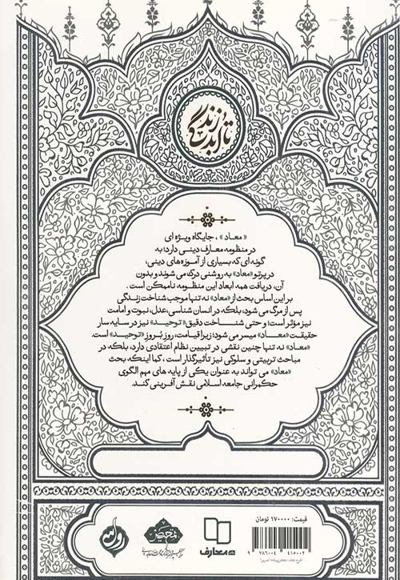 تا ابد زندگی
«معاد»، جایگاه ویژه ای
در منظومه معارف دینی دارد؛ به
گونه ای که بسیاری از آموزه های دینی،
در پرتو «معاد» به روشنی درک می شوند و بدون
آن، دریافت همه ابعاد این منظومه ناممکن است.
بر این اساس بحث از «معاد» نه تنها موجب شناخت زندگی
پس از مرگ می شود، بلکه در انسان شناسی، عدل، نبوت و امامت
نیز مؤثر است و حتی شناخت دقیق «توحید» نیز در سایه سار
حقیقت «معاد» میسر می شود؛ زیرا قیامت، روز بُروز «توحید» است.
«معاد» نه تنها چنین نقشی در تبیین نظام اعتقادی دارد، بلکه در
مباحث تربیتی و سلوکی نیز تأثیرگذار است، کما اینکه بحث
«معاد» می تواند به عنوان یکی از پایه های مهم الگوی
حکمرانی جامعه اسلامی نقش آفرینی کند.
قیمت: ۱۷۰۰۰۰ تومان
معارف